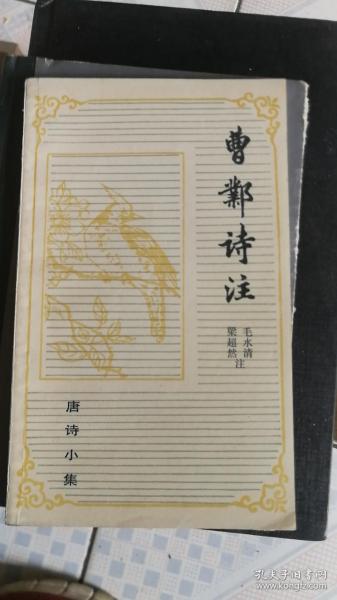 曹鄴诗注
毛水清
梁超然
注
唐诗小集
孔夫子旧书网
www.kongfz.com